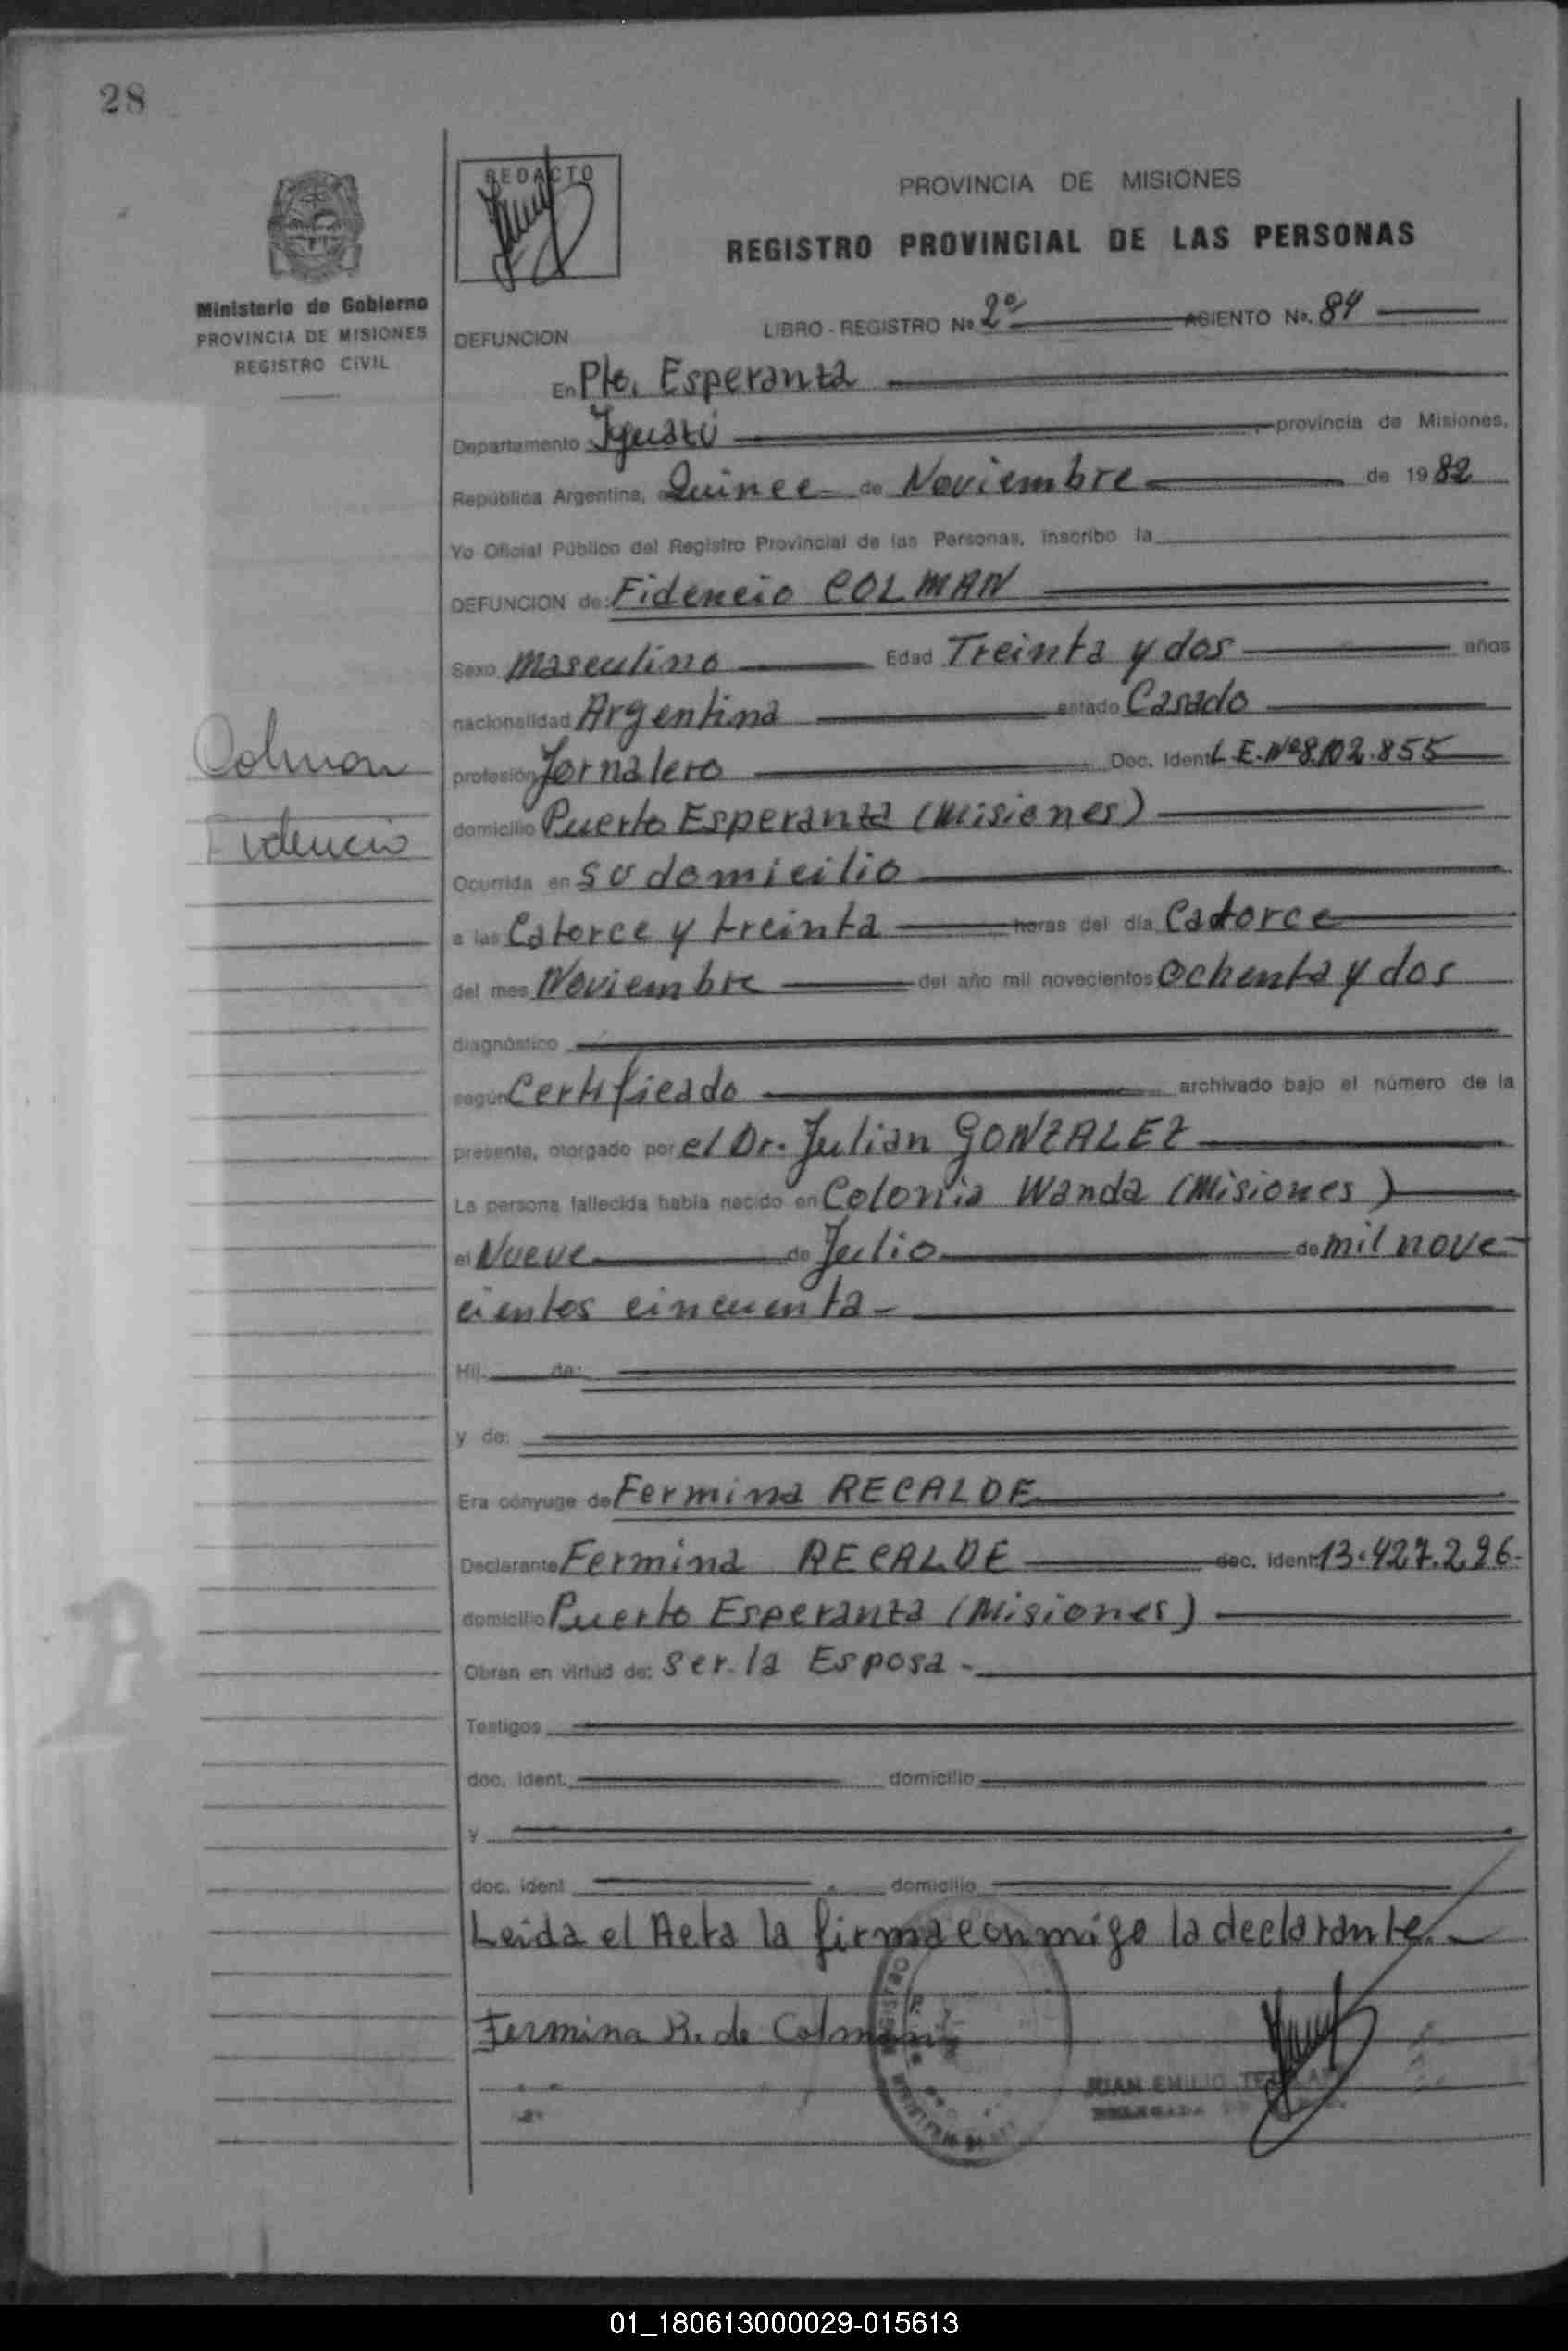 28
REDACTO
PROVINCIA DE MISIONES
REGISTRO PROVINCIAL DE LAS PERSONAS
Ministerio de Gobierno
PROVINCIA DE MISIONES
REGISTRO CIVIL
DEFUNCION
LIBRO - REGISTRO No. 2º ASIENTO No. 84
En Pto. Esperanza
Departamento Iguazú provincia de Misiones,
República Argentina, a Quince de Noviembre de 1982
Yo Oficial Público del Registro Provincial de las Personas, inscribo la
DEFUNCION de: Fidencio COLMAN
Sexo Masculino Edad Treinta y dos años
nacionalidad Argentina estado Casado
Colman
profesión Jornalero Doc. Ident L.E. Nº 8.102.855
Fidencio
domicilio Puerto Esperanza (Misiones)
Ocurrida en su domicilio
a las Catorce y treinta horas del día Catorce
del mes Noviembre del año mil novecientos Ochenta y dos
diagnóstico
según Certificado archivado bajo el número de la
presente, otorgado por el Dr. Julian GONZALEZ
La persona fallecida había nacido en Colonia Wanda (Misiones)
el Nueve de Julio de mil nove-
cientos cincuenta-
Hij de:
y de:
Era cónyuge de Fermina RECALDE
Declarante Fermina RECALDE doc. ident 13.427.296-
domicilio Puerto Esperanza (Misiones)
Obran en virtud de: Ser la Esposa-
Testigos
doc. ident. domicilio
y
doc. ident domicilio
Leida el Acta la firma conmigo la declarante.
Fermina R. de Colman
JUAN EMILIO
01_180613000029-015613